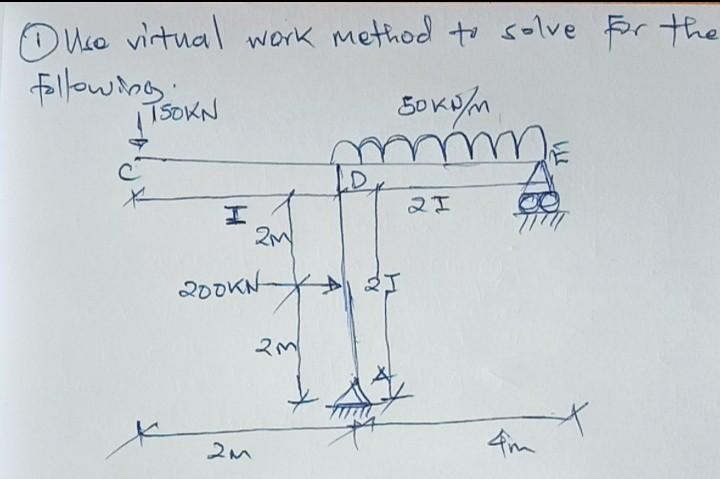 ① Use virtual work method to solve for the
following.
150KN
50KN/m
C
D
E
I
2I
2m
200KN
2I
2m
A
2m
4m